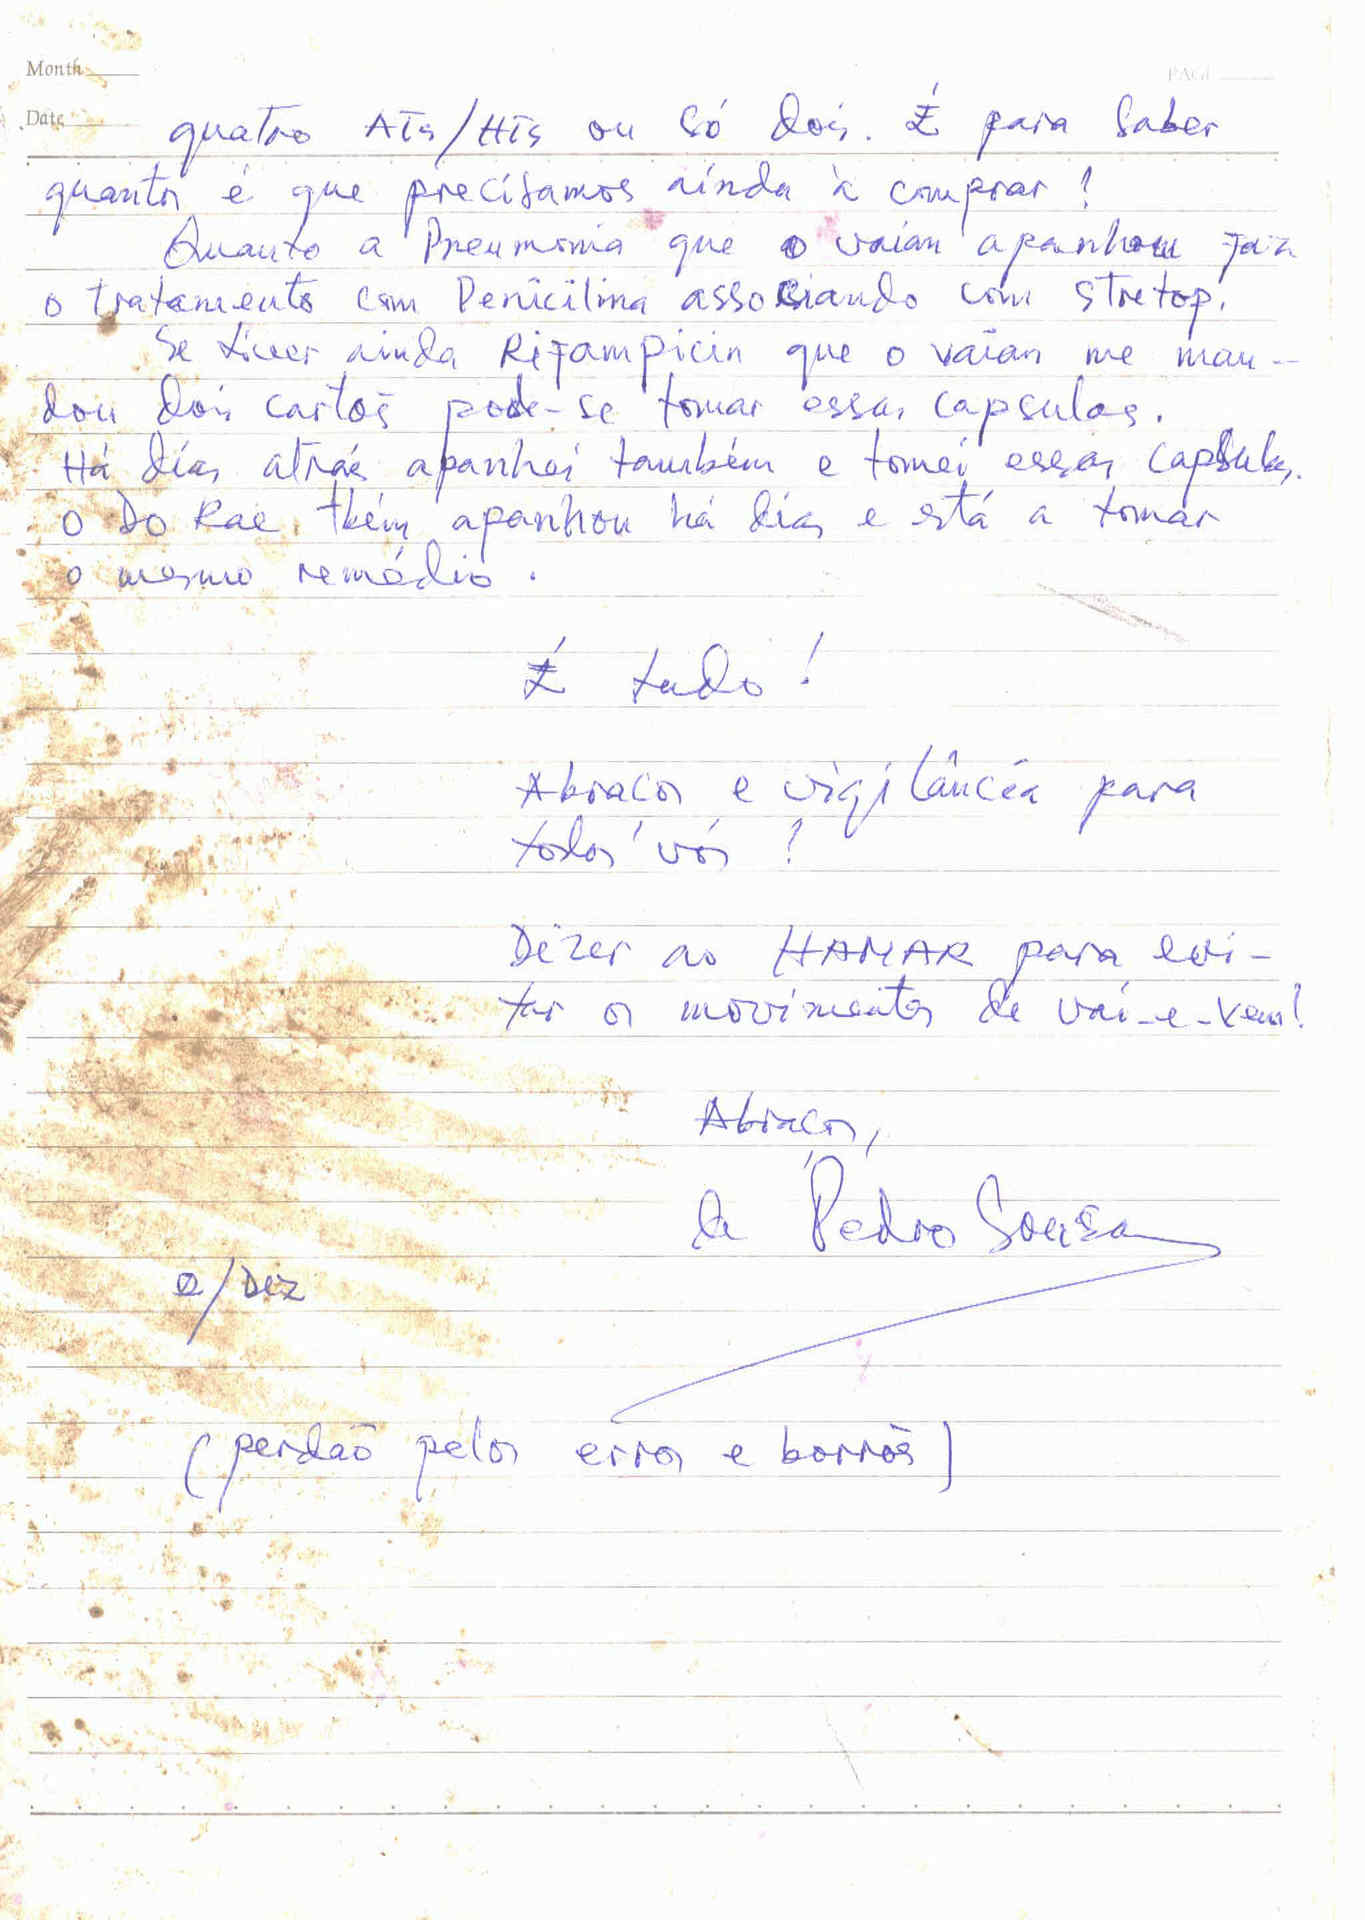 Month
PAGE
Date
quatro ATs/HTs ou só dois. É para saber
quantos é que precisamos ainda à comprar!
Quanto a Pneumonia que o vaian apanhou faz
o tratamento com Penicilina associando com stretop.
Se tiver ainda Rifampicin que o vaian me man-
dou dois cartoẽs pode-se tomar essas capsulas.
Há dias atrás apanhei também e tomei essas capsulas.
O Do Rae tbém apanhou há dias e está a tomar
o mesmo remédio.
É tudo!
Abraços e vigilância para
todos vós!
Dizer ao HAMAR para evi-
tar os movimentos de vai-e-vem!
Abraços,
de Pedro Sousa
/Dez
(perdaõ pelos erros e borrões)